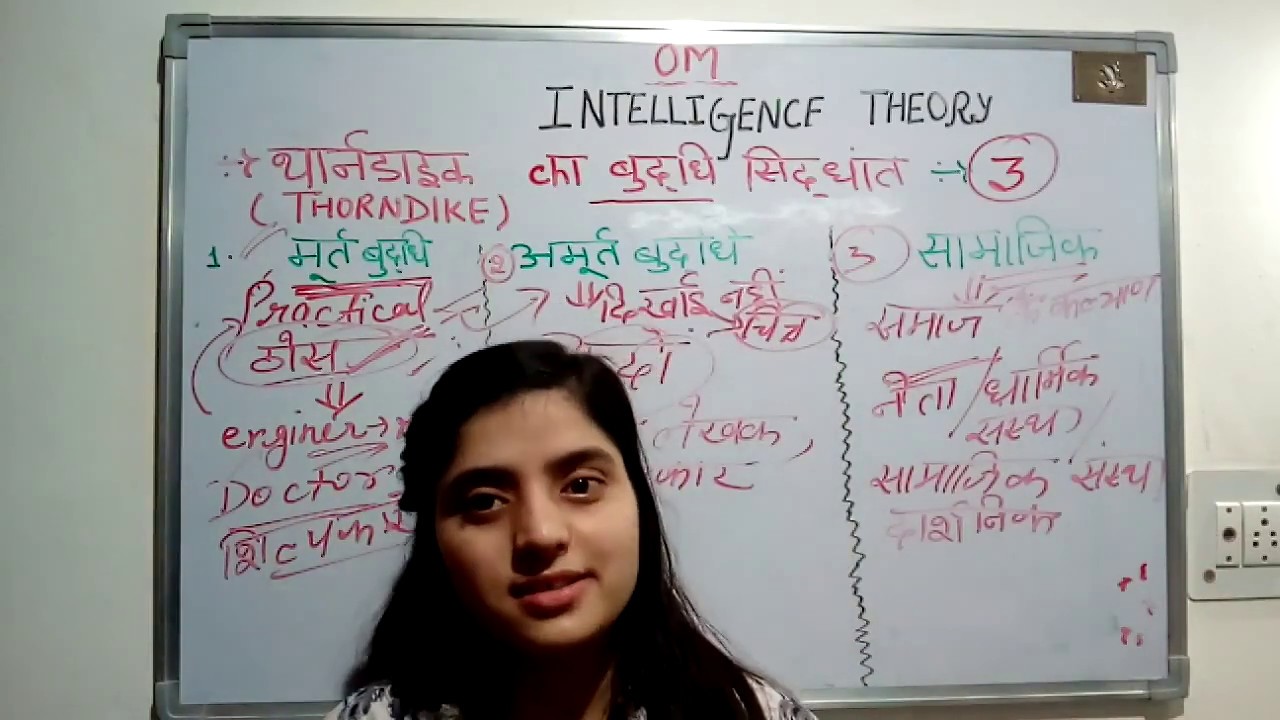 OM
INTELLIGENCE THEORY
थार्नडाइक का बुद्धि सिद्धांत → 3
(THORNDIKE)
1. मूर्त बुद्धि
Practical
ठोस
enginer →
Doctor
शिल्पकार
2 अमूर्त बुद्धि
दिखाई नहीं
चित्र
लेखक,
कार
3 सामाजिक
समाज
नेता / धार्मिक
संस्था
सामाजिक संस्थ
दार्शनिक